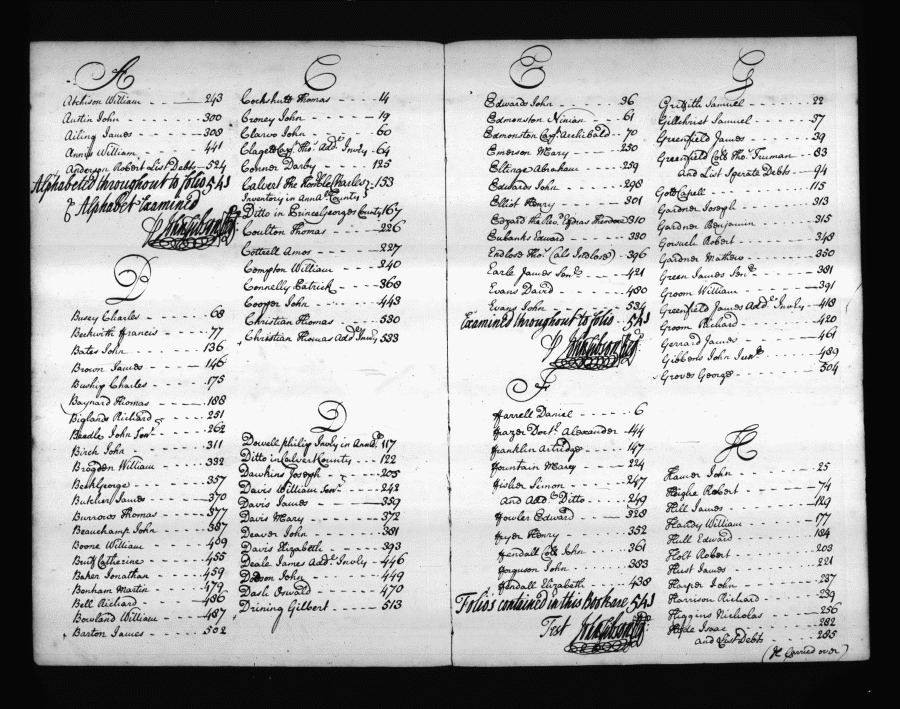 A
Atchison William 243
Austin John 300
Ailing James 308
Annis William 441
Anderson Robert List Debts 524
Alphabeted throughout to folio 543
& Alphabet Examined
John Gibson
B
Busey Charles 68
Beckwith Francis 77
Bates John 136
Brown James 146
Buship Charles 175
Baynard Thomas 188
Biglands Richard 251
Beadle John Senr. 262
Birch John 311
Brogden William 332
Beck George 357
Butcher James 370
Burrows Thomas 377
Beauchamp John 387
Boone William 409
Brutt Catherine 455
Baker Jonathan 459
Bonham Martin 479
Bell Richard 486
Bowland William 487
Barton James 502
C
Cockshutt Thomas 14
Croney John 19
Clarvo John 60
Clagett Cap. Tho. Add.l Invly 64
Conner Darby 125
Calvert the Honble Charles 153
Inventory in Anna. County
Ditto in Prince Georges County 167
Coulton Thomas 226
Cottrell Amos 227
Compton William 240
Connelly Patrick 368
Cooper John 443
Christian Thomas 530
Christian Thomas Add.l Invly 533
D
Dowell Philip Invly in Anna. 117
Ditto in Calvert County 122
Dawkins Joseph 205
Davis William Senr. 242
Davis James 359
Davis Mary 372
Deaver John 381
Davis Elizabeth 393
Deale James Add.l Invly 446
Dodson John 449
Dash Oswald 470
Drining Gilbert 513
E
Edwards John 36
Edmonston Ninian 61
Edmonston Cap. Archibald 70
Emerson Mary 250
Eltinge Abraham 259
Edwards John 298
Elliot Henry 301
Edzard the Rev.d Esdras Theodore 310
Eubanks Edward 330
Enclose Tho. (als Inclose) 396
Earle James Senr. 421
Evans David 480
Evans John 534
Examined throughout to folio 543
John Gibson
F
Farrell Daniel 6
Frazer Doct. Alexander 44
Franklin Artridge 147
Fountain Mary 224
Fisher Simon 247
And Add.l Ditto 249
Fowler Edward 328
Fryer Henry 352
Fendall Coll. John 361
Ferguson John 383
Fendall Elizabeth 438
Folios contained in this Book are 543
Test John Gibson
G
Griffith Samuel 22
Gillchrist Samuel 37
Greenfield James 39
Greenfield Coll. Tho. Truman 83
And List Sperate Debts 94
Gott Capell 115
Gardner Joseph 313
Gardner Benjamin 315
Gorsuch Robert 348
Gardner Mathew 350
Green James Senr. 381
Groom William 391
Greenfield James Add.l Invly 418
Groom Richard 420
Gerrard James 461
Gibbens John Junr. 489
Groves George 504
H
Hawer John 25
Heighe Robert 74
Hill James 129
Handy William 177
Hull Edward 184
Holt Robert 203
Hust James 221
Harper John 237
Harrison Richard 239
Higgins Nicholas 256
Hyde Isaac 282
and List Debts 285
(H Carried over)